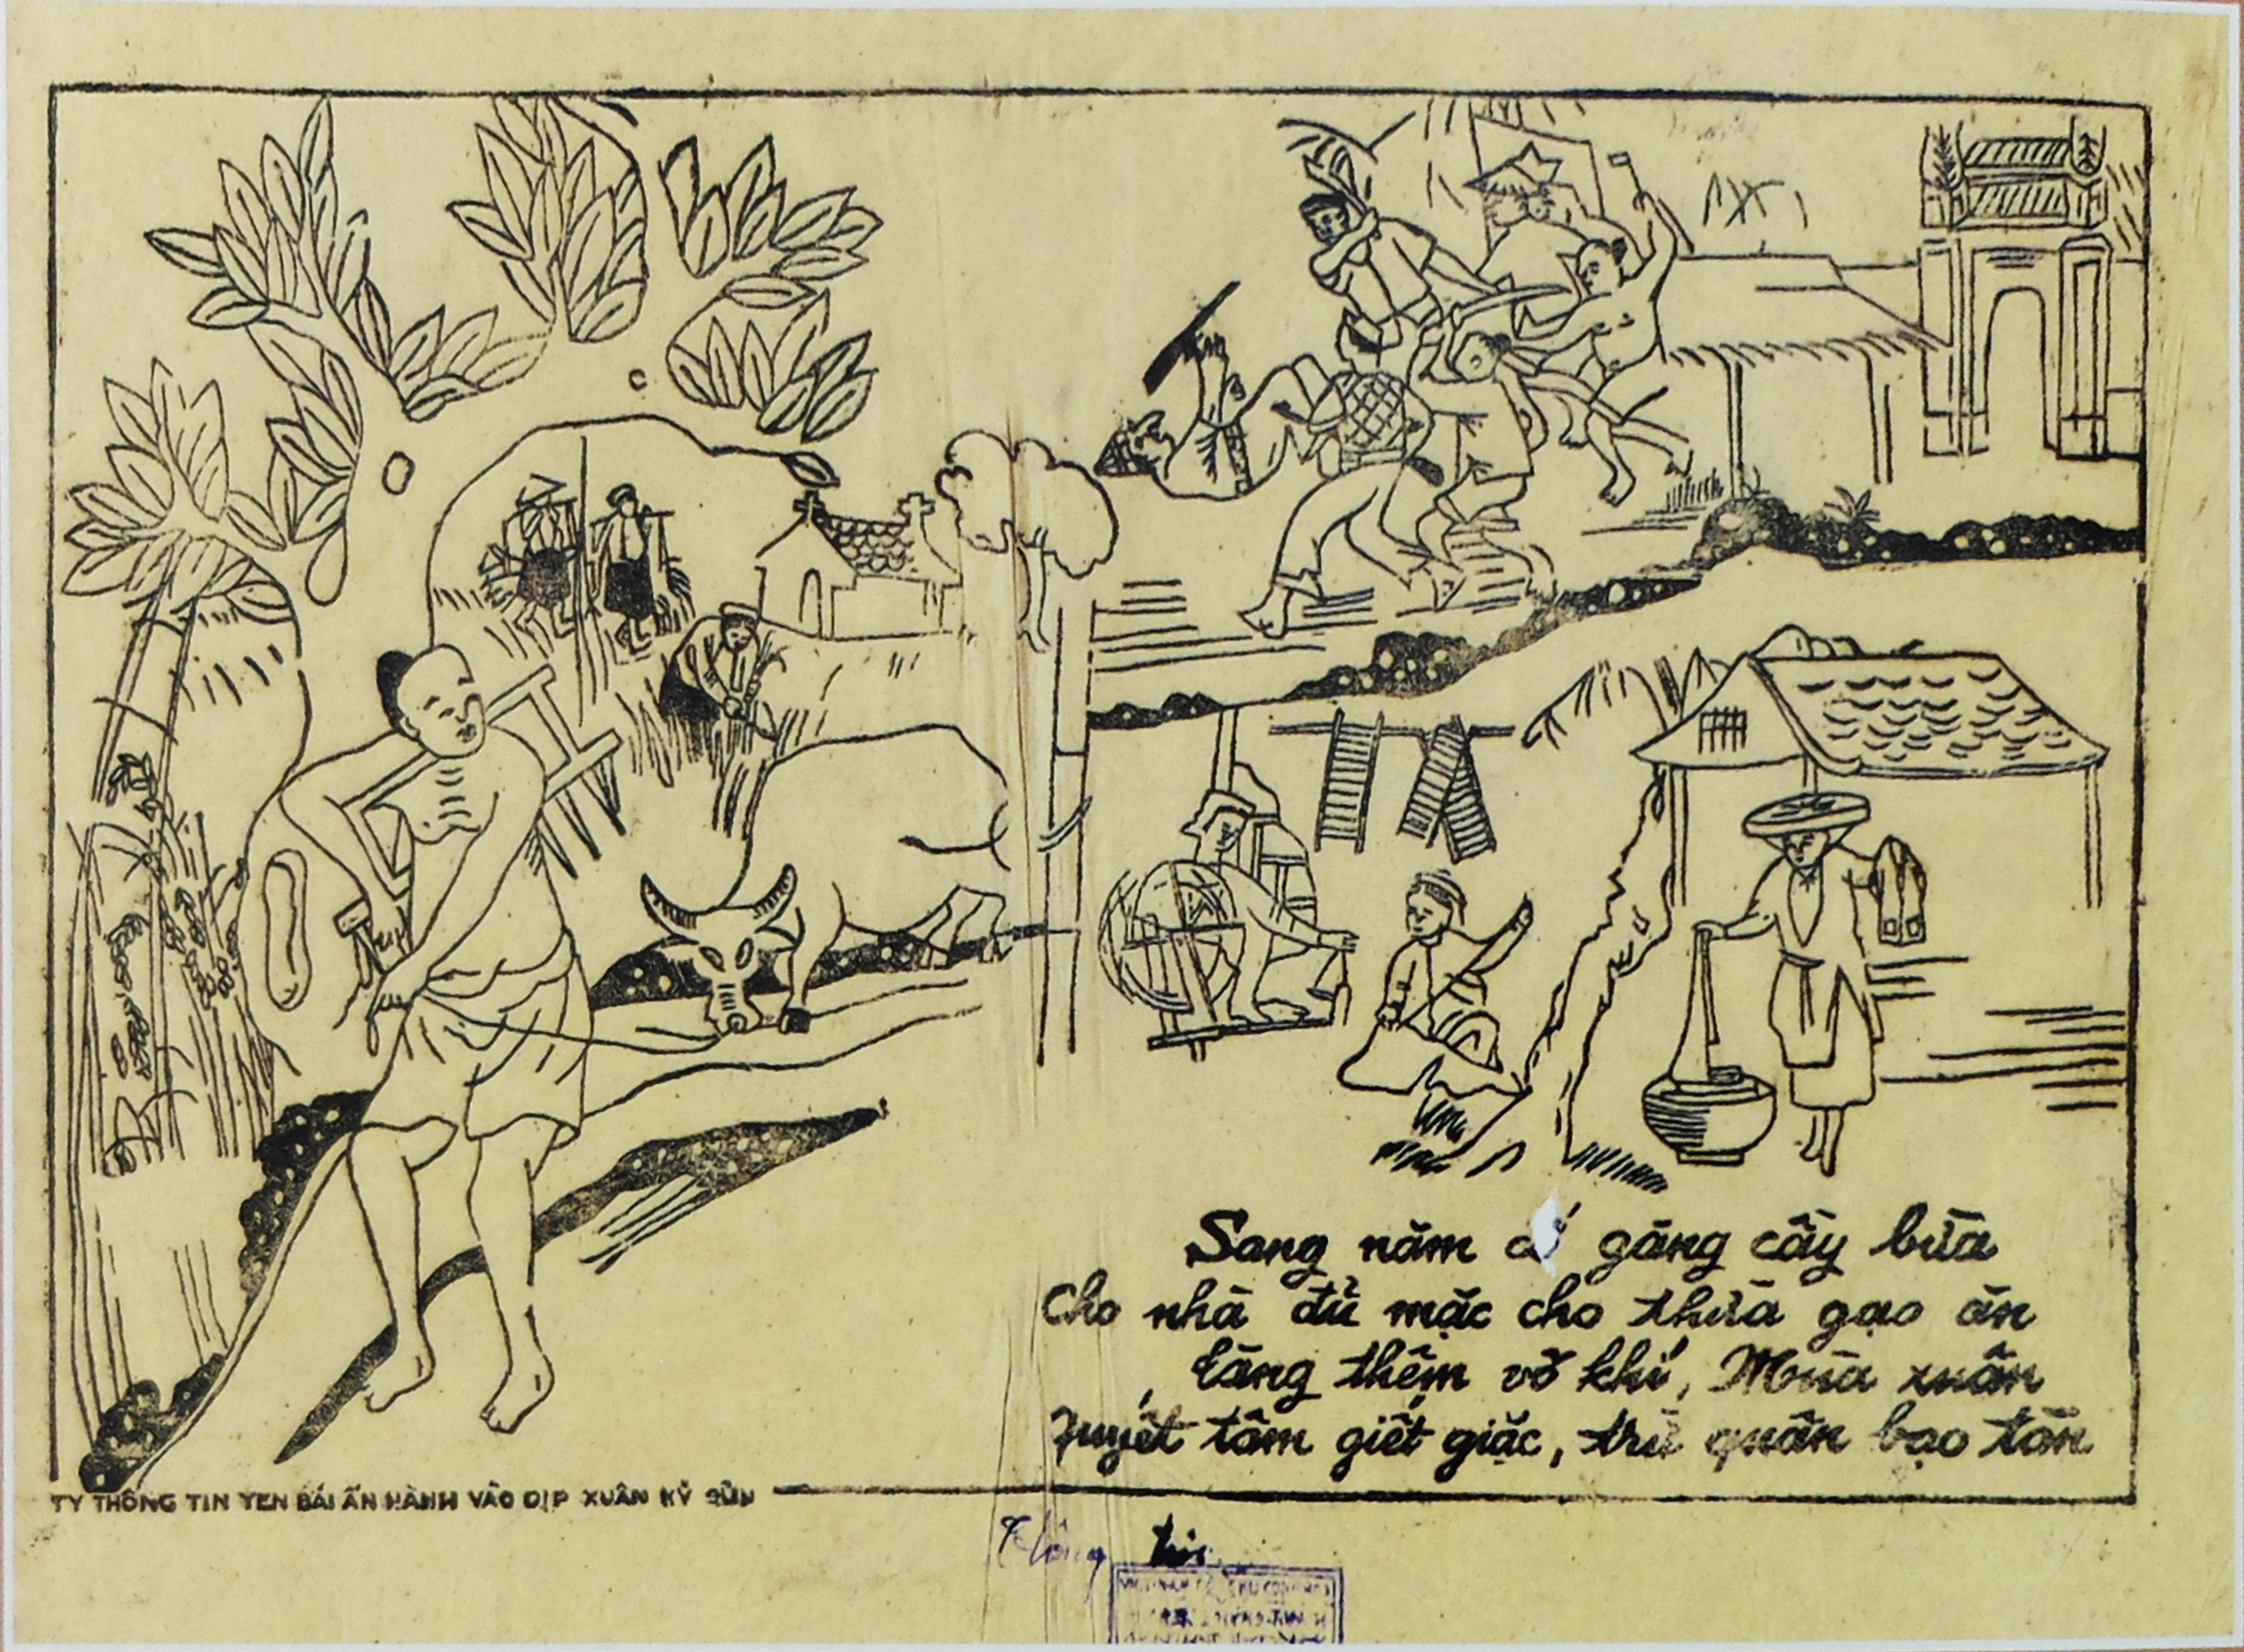 Sang năm cố gắng cày bừa
Cho nhà đủ mặc cho thừa gạo ăn
Tăng thêm võ khí, Mùa xuân
Quyết tâm giết giặc, trừ quân bạo tàn
TY THÔNG TIN YEN BÁI ẤN HÀNH VÀO DỊP XUÂN KỶ SỬU
Thông tin